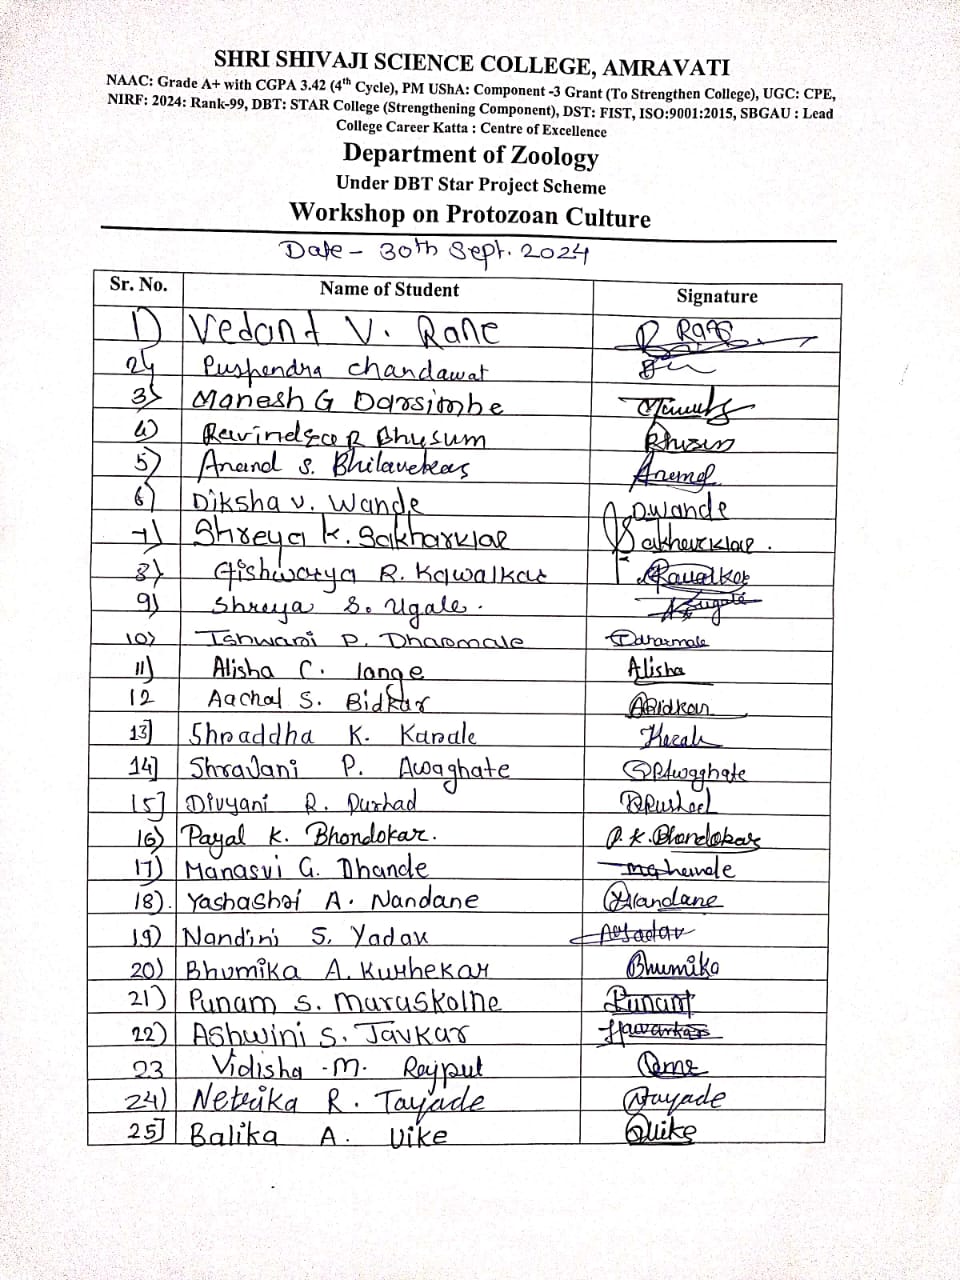 SHRI SHIVAJI SCIENCE COLLEGE, AMRAVATI
NAAC: Grade A+ with CGPA 3.42 (4th Cycle), PM UShA: Component -3 Grant (To Strengthen College), UGC: CPE,
NIRF: 2024: Rank-99, DBT: STAR College (Strengthening Component), DST: FIST, ISO:9001:2015, SBGAU : Lead
College Career Katta : Centre of Excellence
Department of Zoology
Under DBT Star Project Scheme
Workshop on Protozoan Culture
Date - 30th Sept. 2024
Sr. No. Name of Student Signature
1) Vedant V. Rane Rane
2) Puspendra chandawat
3) Manesh G Darsimbe
4) Ravindra R Bhusum
5) Anand S. Bhilavekar Anand
6) Diksha V. Wande Dwande
7) Shreya K. Sakharkar
8) Aishwarya R. Kawalkar
9) Shreya S. Ugale.
10) Ishwari P. Dharmale Idharmale
11) Alisha C. lange Alisha
12 Aachal S. Bidkar ABidkar
13] Shraddha K. Karale
14] Shravani P. Awaghate SPAwaghate
15] Divyani R. Durhad
16) Payal K. Bhondokar. P.K.Bhondokar
17) Manasvi G. Dhande
18). Yashashri A. Nandane
19) Nandini S. Yadav
20) Bhumika A. Kurhekar Bhumika
21) Punam S. Maraskolhe Punam
22) Ashwini S. Javkar
23 Vidisha .M. Rajput
24) Netrika R. Tayade Ntayade
25] Balika A. Uike Buike